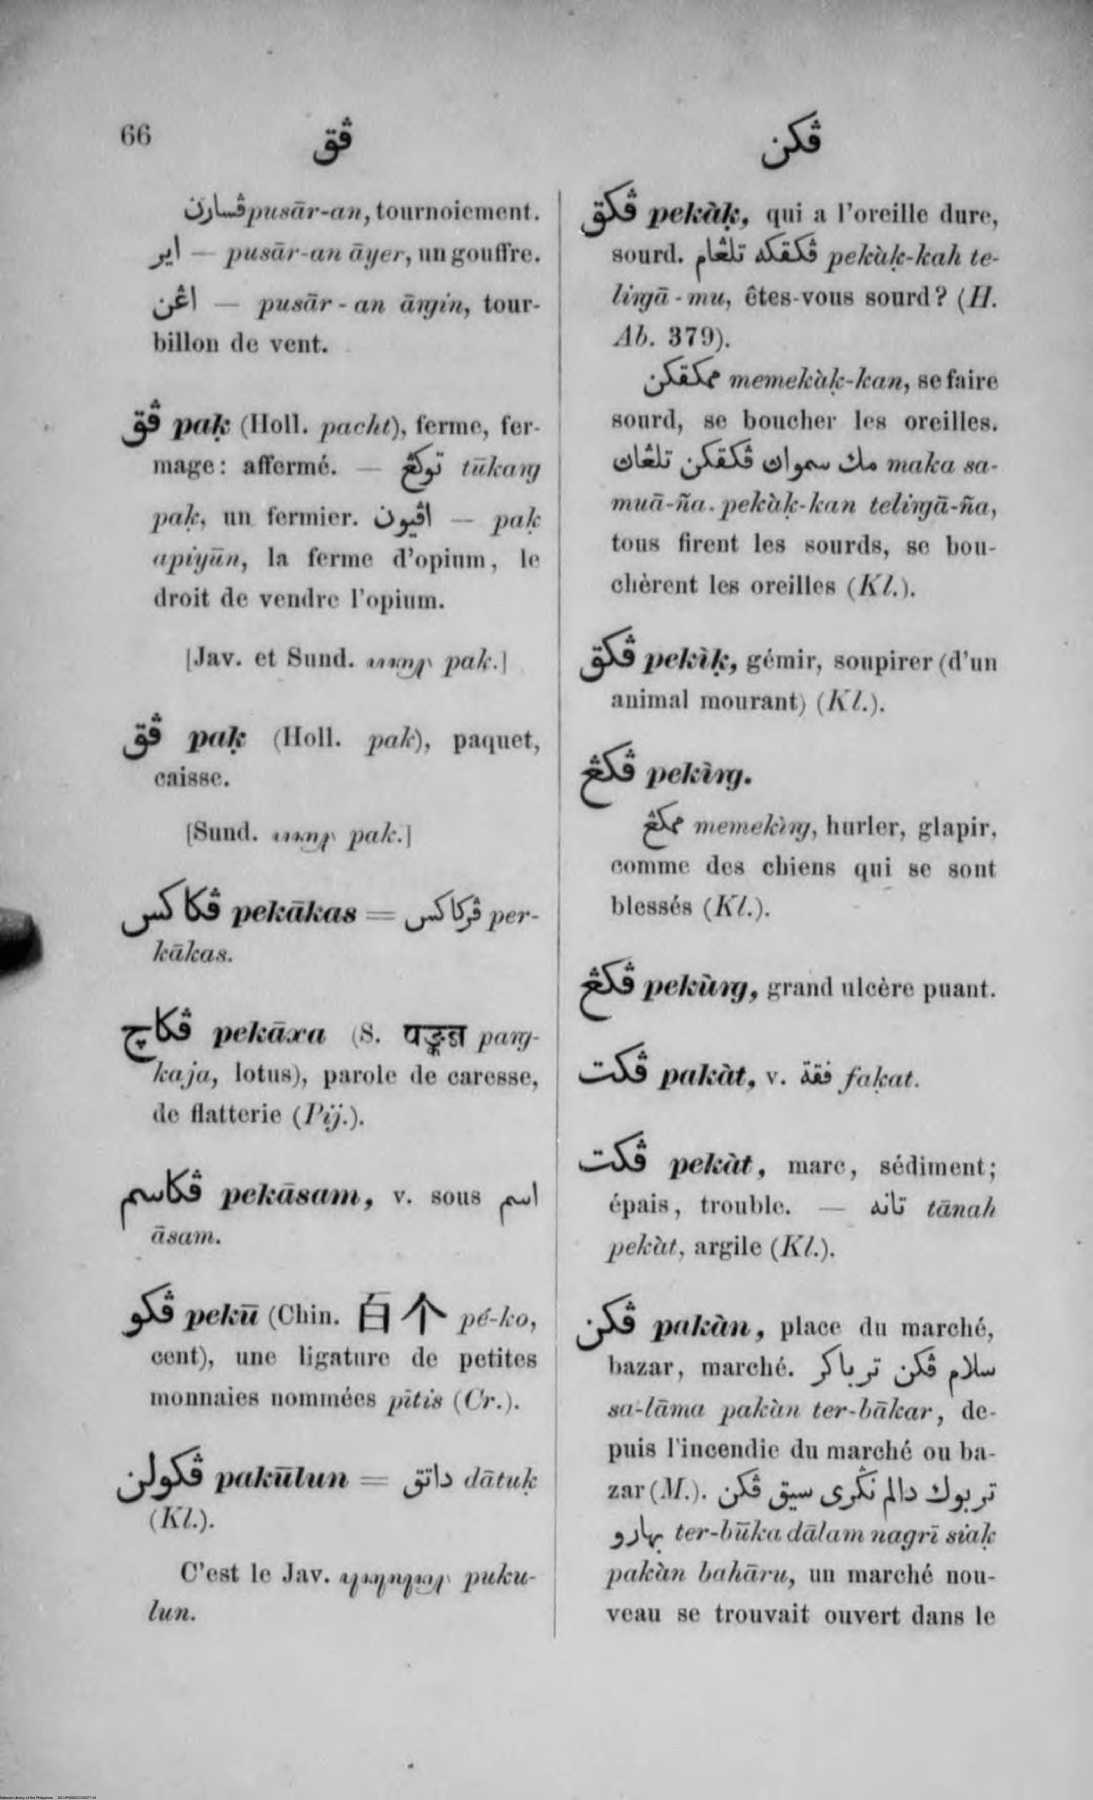 66
ڤق
ڤکن
ڤسارن pusār-an, tournoiement.
اير — pusār-an āyer, un gouffre.
اڠن — pusār-an āṅin, tour-
billon de vent.
ڤق paḳ (Holl. pacht), ferme, fer-
mage: affermé. — توکڠ tūkaṅ
paḳ, un fermier. اڤيون — paḳ
apiyūn, la ferme d'opium, le
droit de vendre l'opium.
[Jav. et Sund. pak.]
ڤق paḳ (Holl. pak), paquet,
caisse.
[Sund. pak.]
ڤکاکس pekākas = ڤرکاکس per-
kākas.
ڤکاچ pekāxa (S. पङ्कज paṅ-
kaja, lotus), parole de caresse,
de flatterie (Pij.).
ڤکاسم pekāsam, v. sous اسم
āsam.
ڤکو pekū (Chin. 白个 pé-ko,
cent), une ligature de petites
monnaies nommées pītis (Cr.).
ڤکولن pakūlun = داتق dātuḳ
(Kl.).
C'est le Jav. puku-
lun.
ڤکق pekàḳ, qui a l'oreille dure,
sourd. ڤکقکه تلڠام pekàḳ-kah te-
liṅā-mu, êtes-vous sourd? (H.
Ab. 379).
ممکقکن memekàḳ-kan, se faire
sourd, se boucher les oreilles.
مك سموان ڤکقکن تلڠان maka sa-
muā-ña pekàḳ-kan teliṅā-ña,
tous firent les sourds, se bou-
chèrent les oreilles (Kl.).
ڤکق pekìḳ, gémir, soupirer (d'un
animal mourant) (Kl.).
ڤکڠ pekìṅ.
ممکڠ memekìṅ, hurler, glapir,
comme des chiens qui se sont
blessés (Kl.).
ڤکڠ pekùṅ, grand ulcère puant.
ڤکت pakàt, v. فقة faḳat.
ڤکت pekàt, marc, sédiment;
épais, trouble. — تانه tānah
pekàt, argile (Kl.).
ڤکن pakàn, place du marché,
bazar, marché. سلام ڤکن ترباکر
sa-lāma pakàn ter-bākar, de-
puis l'incendie du marché ou ba-
zar (M.). تربوك دالم نڬري سيق ڤکن
بهارو ter-būka dālam nagrī siaḳ
pakàn bahāru, un marché nou-
veau se trouvait ouvert dans le